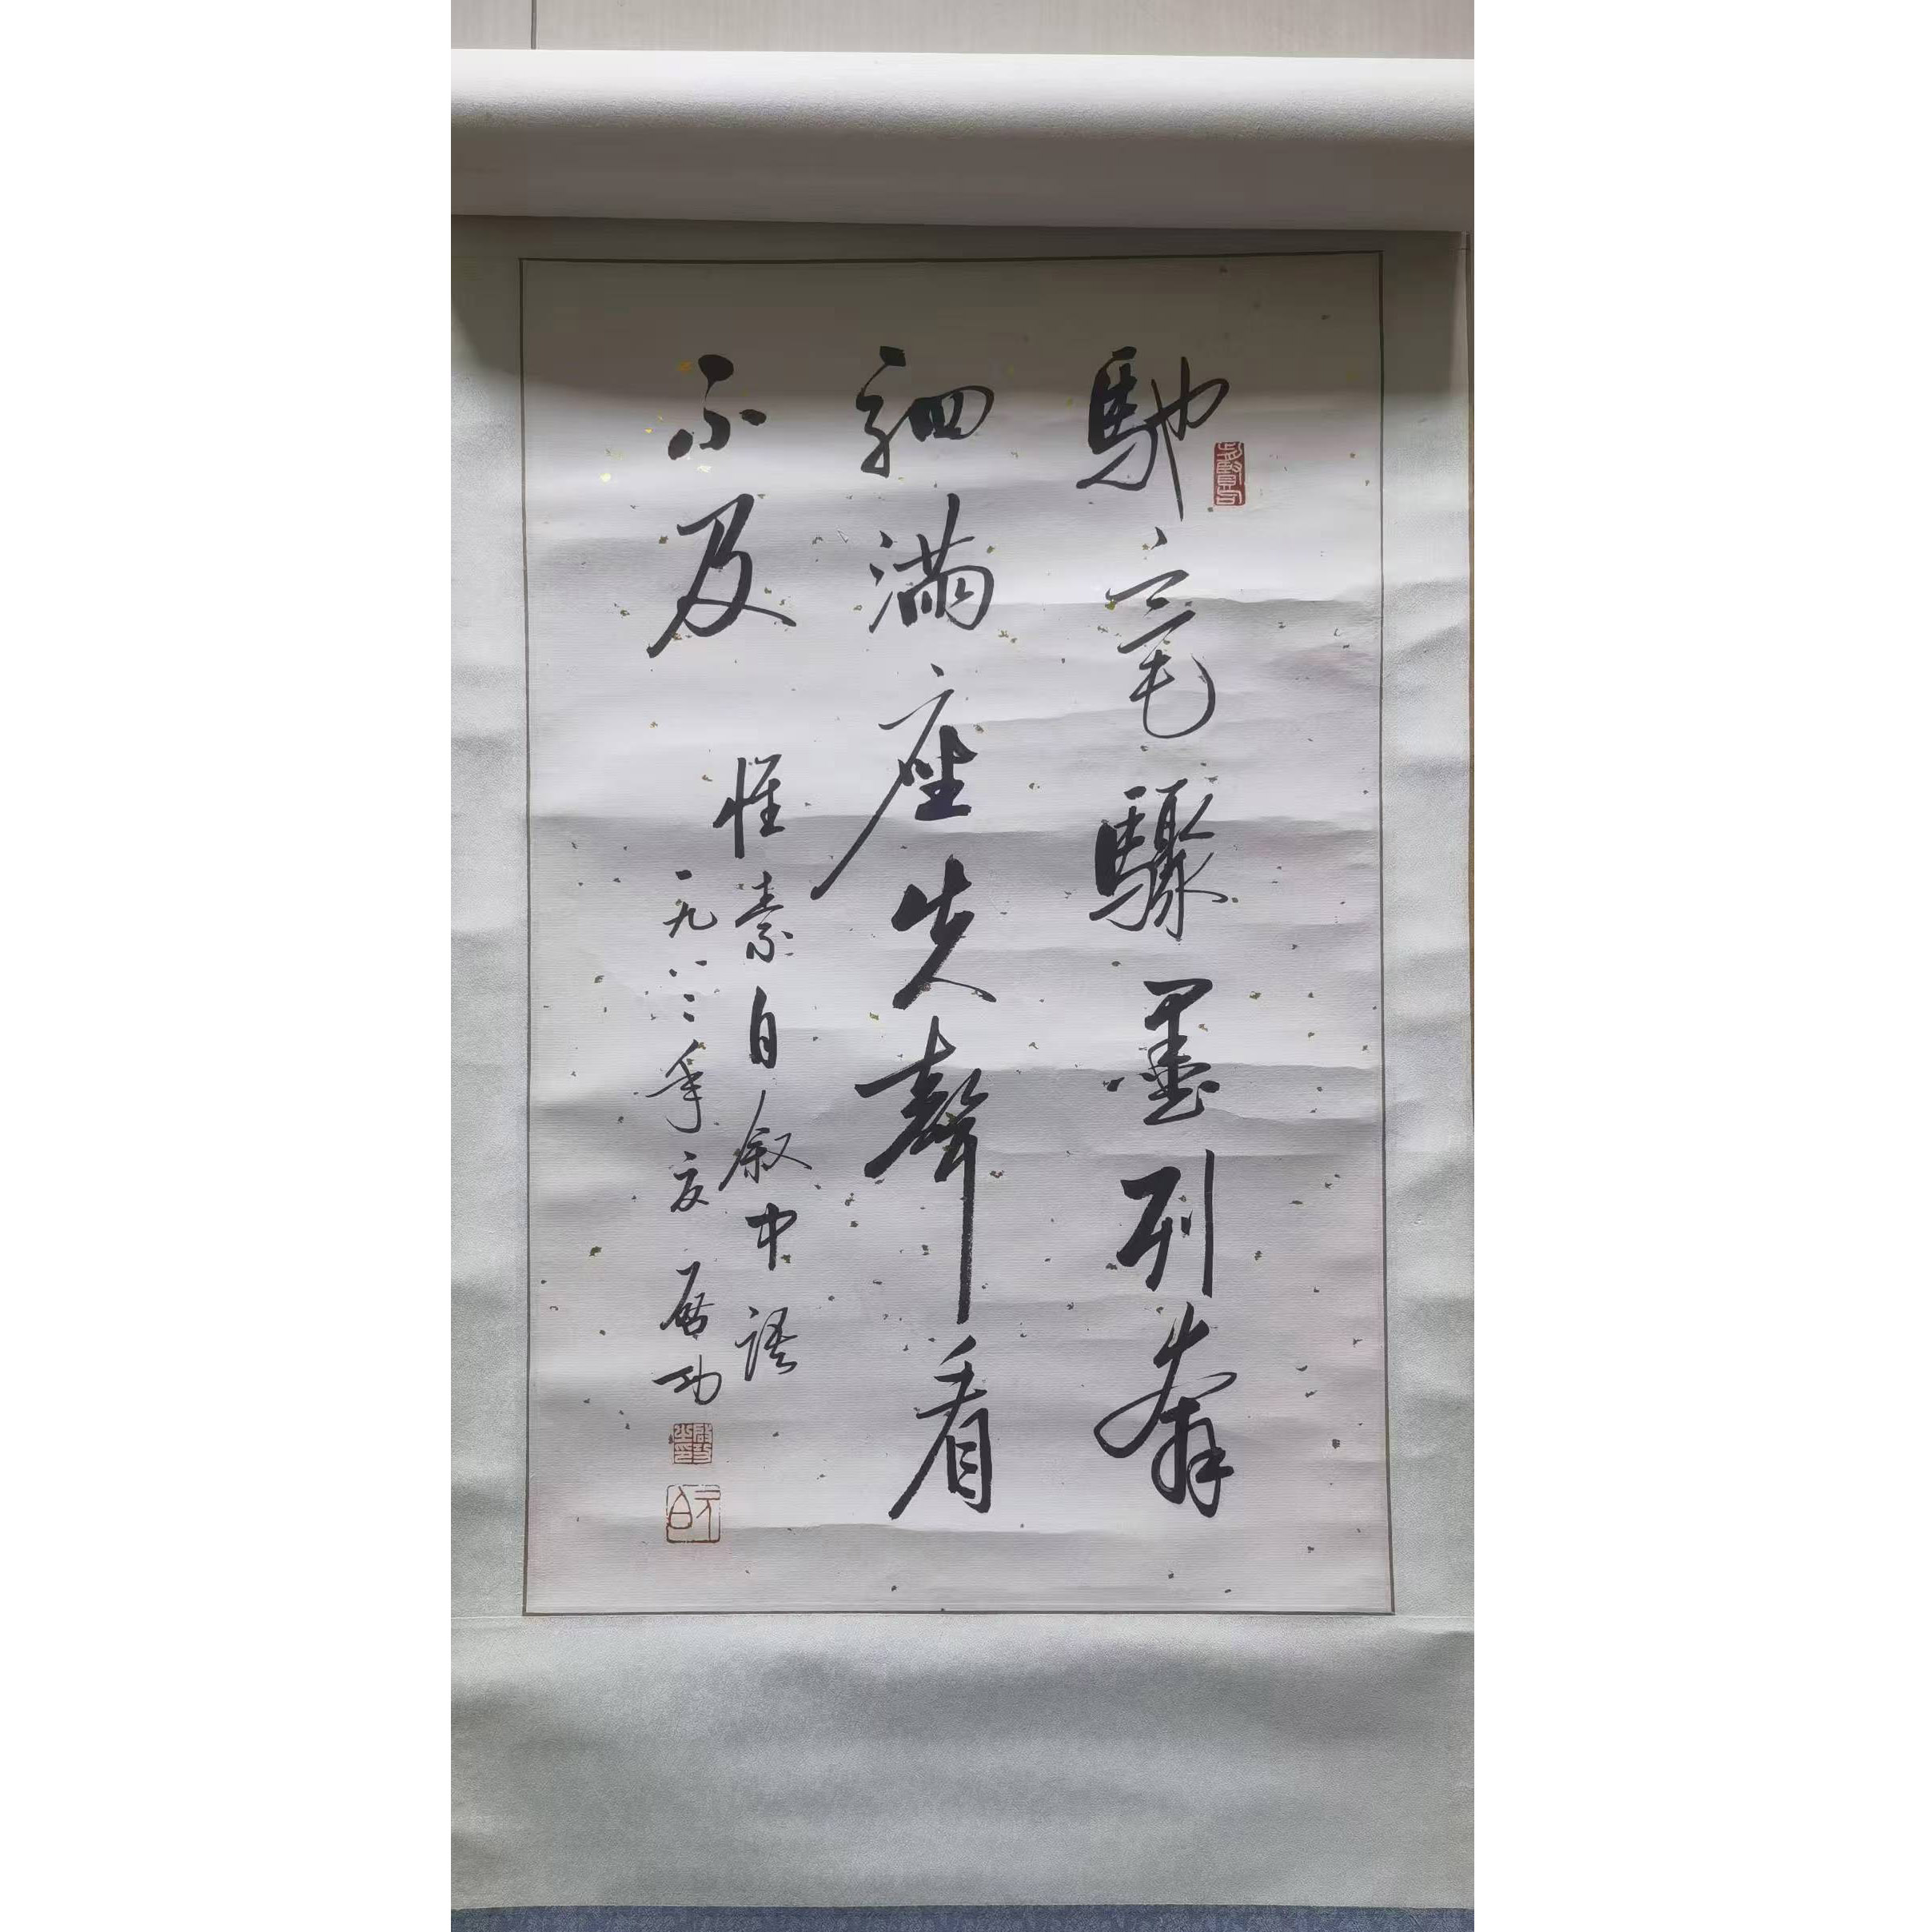 馳毫驟墨列奔
駟滿座失聲看
不及
懷素自叙中語
一九八二年夏 啟功